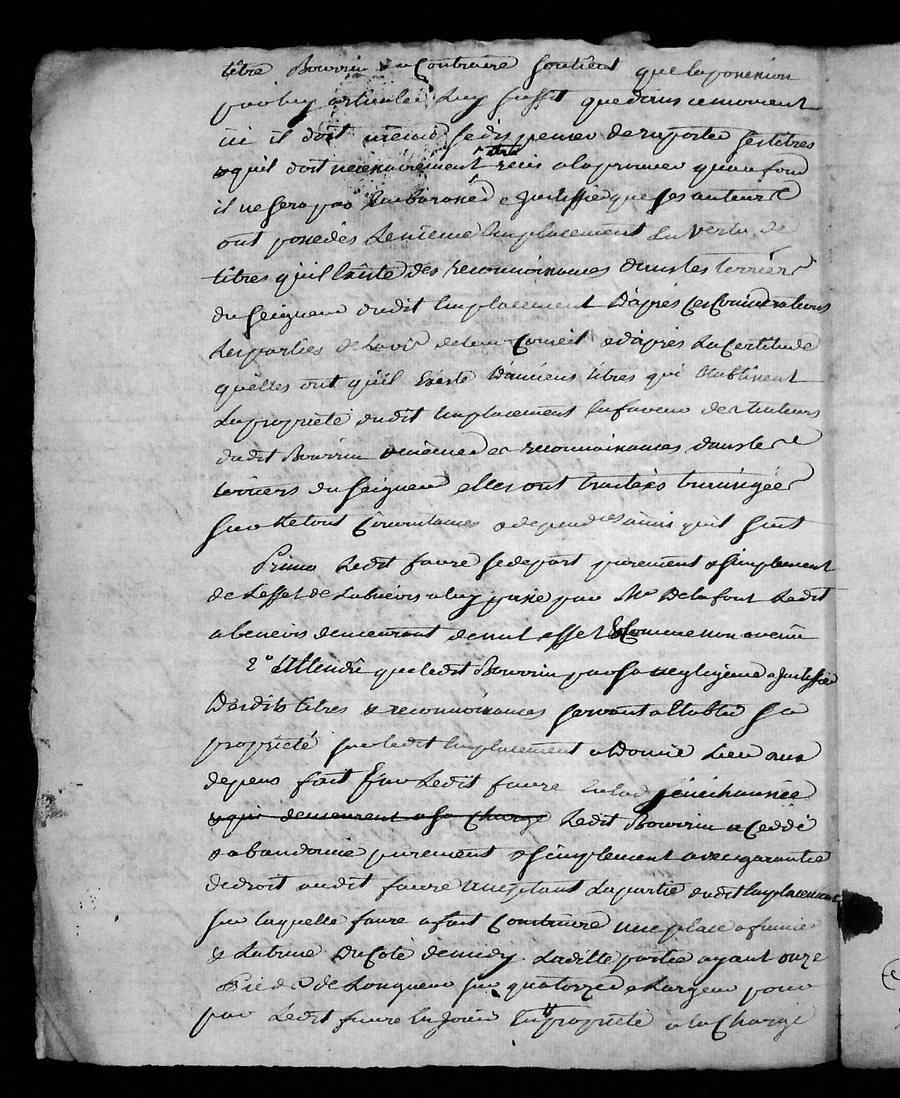 titre Bouvrin au Contraire soutient que la possession
par luy articulée luy suffit que dans ce moment
icy il doit même se dispenser de raporter ses titres
qu'il doit necessairement etre reçu a la prouver qu'au fond
il ne sera pas Embarassé a justiffier que ses auteurs
ont possedés le même Emplacement En vertu de
titres qu'il Existe des reconnoissances dans les terriers
du seigneur dudit Emplacement D'après Ces Considerations
Les parties de L'avis de leur Conseil & d'après La Certitude
quelles ont qu'il Existe D'anciens titres qui Etablissent
La propriété dudit Emplacement En faveur des auteurs
dudit Bouvrin & même des reconnoissances dans les
terriers du seigneur elles ont traitées transigées
sur le tout Circonstances & dependances ainsi qu'il suit
Primo Ledit faure se depart purement & simplement
de L'effet de L'abenevis a luy passé par Mr Delafont Ledit
abenevis demeurant de nul effet & Comme non avenu
2° Attendu que ledit Bouvrin par sa negligence a justiffier
Desdits titres & reconnoissances servant a Etablir sa
propriété sur ledit Emplacement a Donné Lieu aux
depens fait par Ledit faure en la senechaussée
& qui demeurent a sa Charge Ledit Bouvrin a Ceddé
& abandonné purement & simplement avec garantie
de droit audit faure acceptant La partie dudit Emplacement
sur laquelle faure a fait Construire une place a fumier
& Latrine Du Coté de midy Laditte partie ayant onze
Pieds de Longueur sur quatorze de Largeur pour
par Ledit faure En jouir En propriété a la Charge